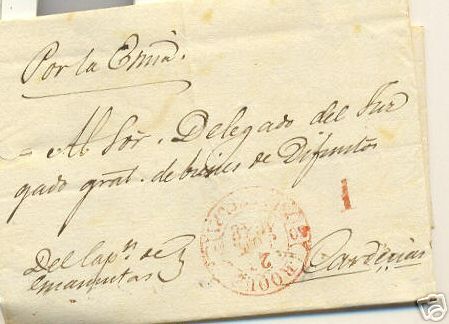 Por la Emiã.
Al Sor. Delegado del Juz
gado gral. de bienes de Difuntos
1
Del Capn. de
Cardenas